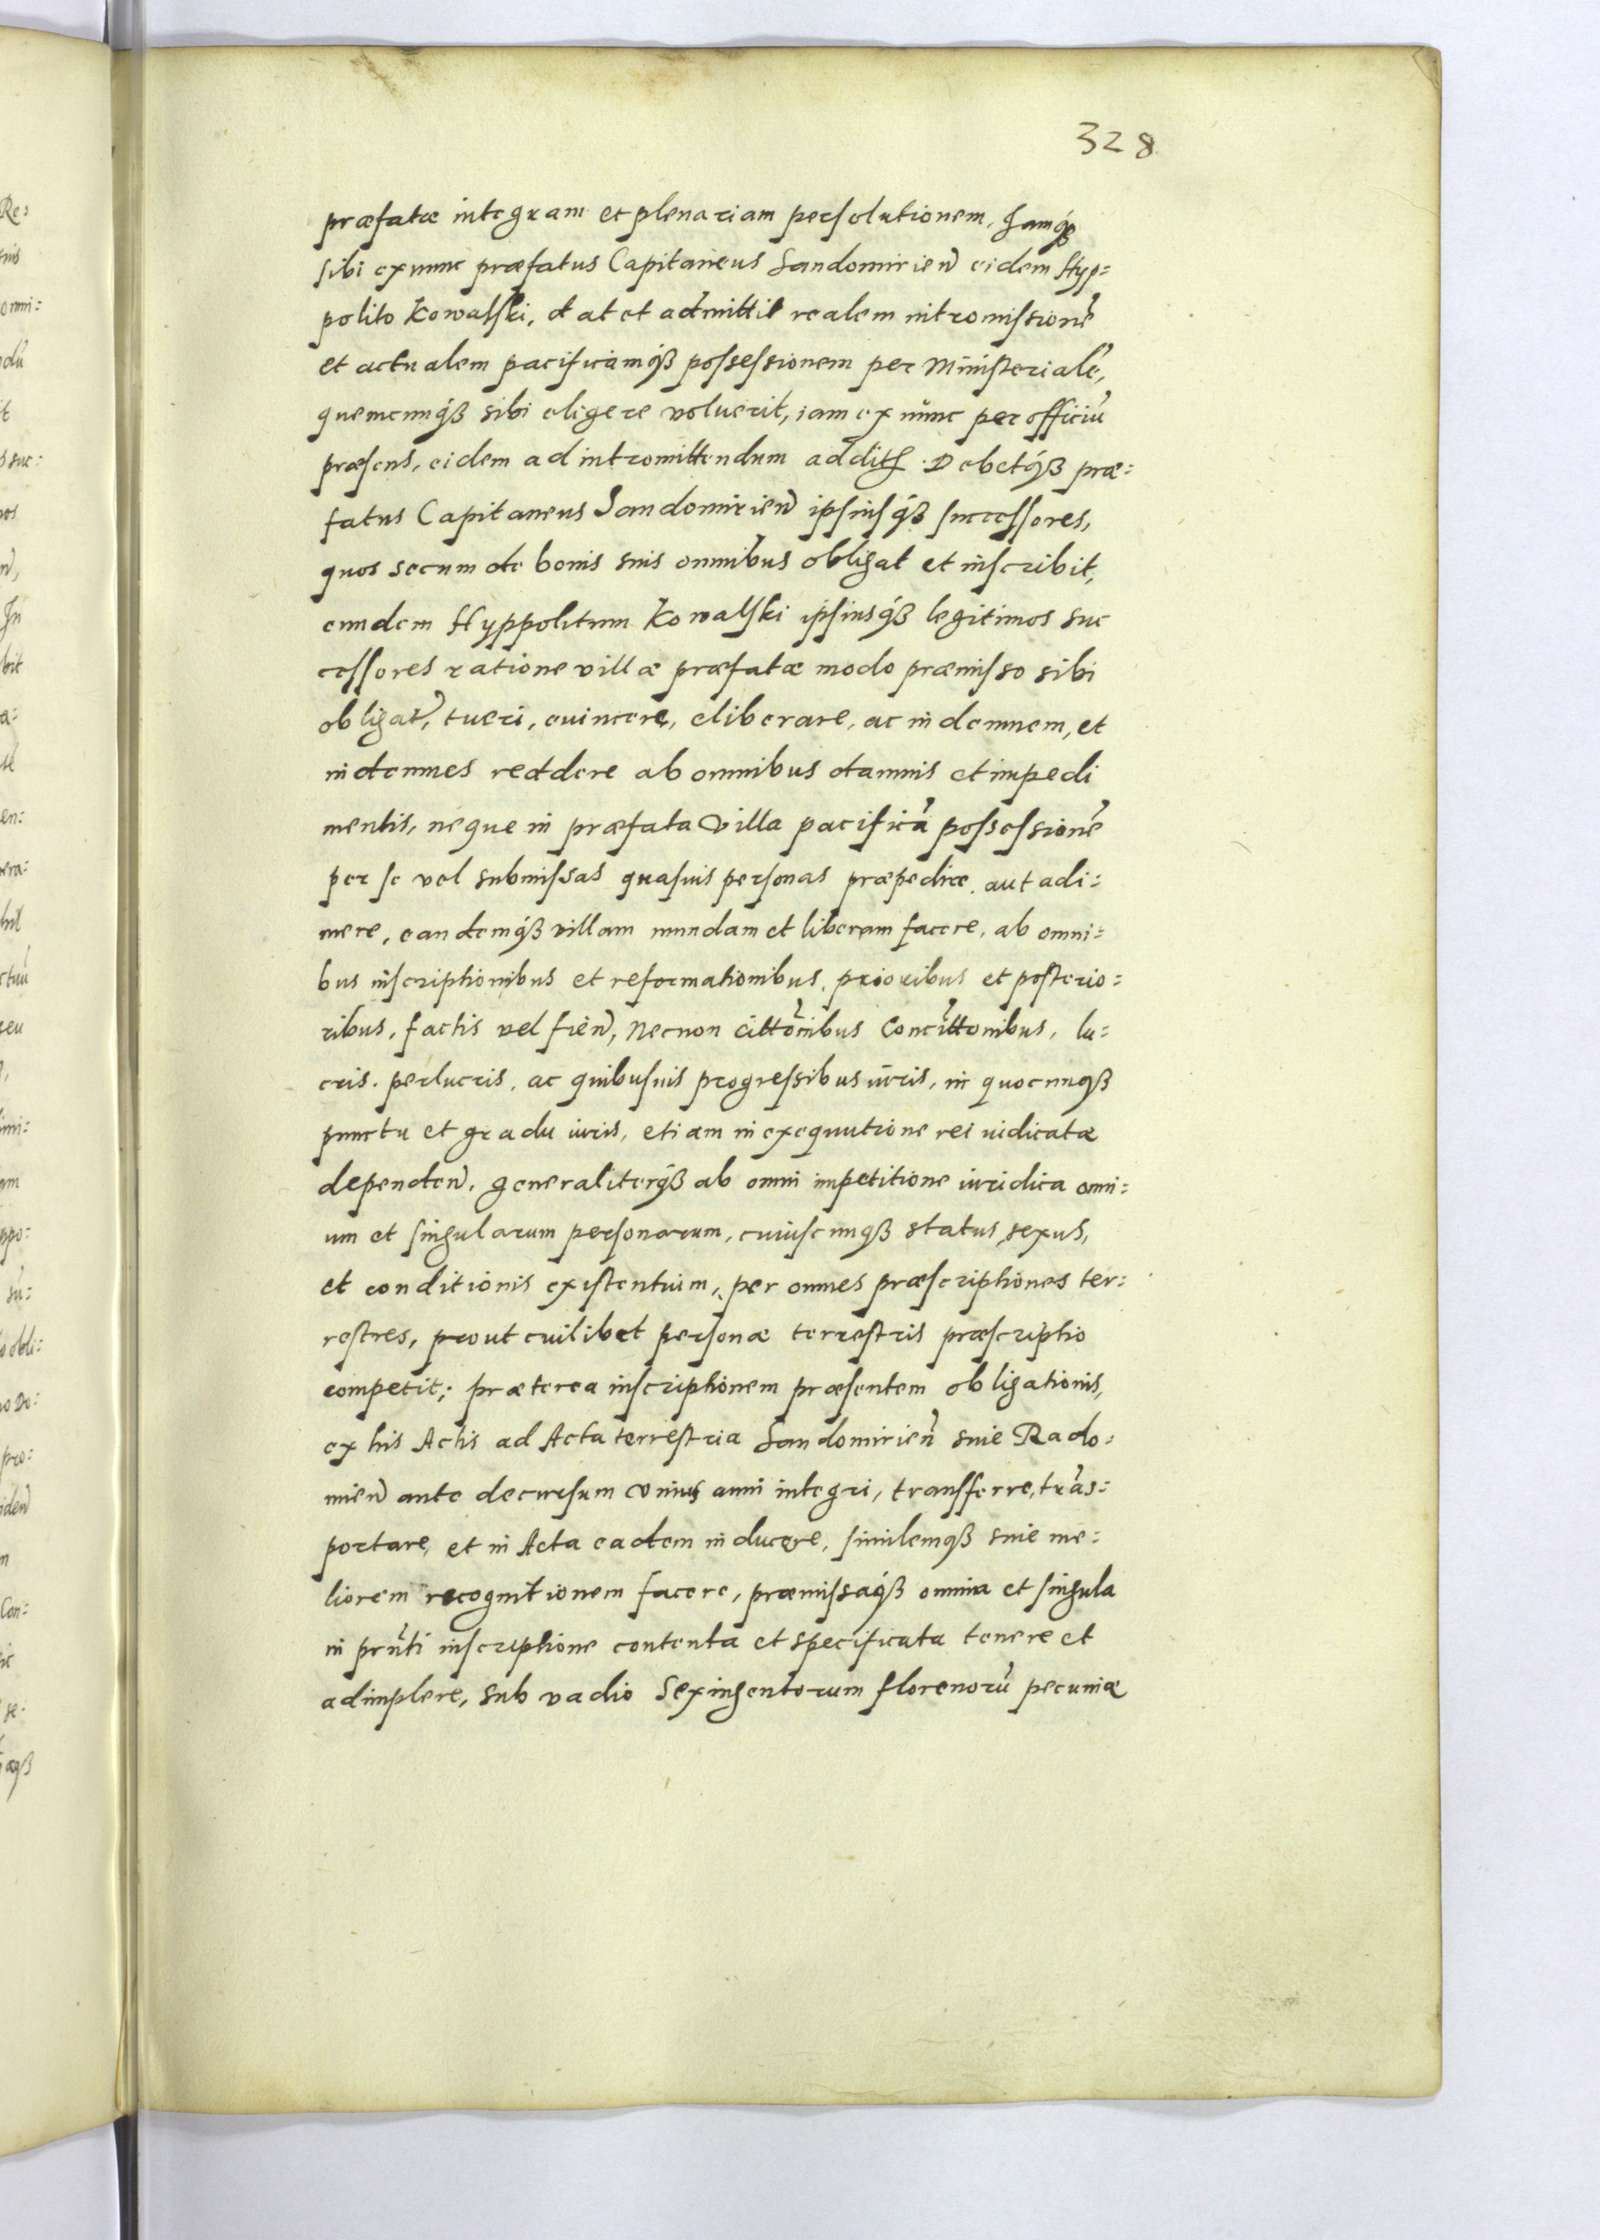 328
præfatæ integram et plenariam persolutionem, Jamq́
sibi ex nunc præfatus Capitaneus Sandomirien̄ eidem Hyp=
polito Kowalski, dat et admittit realem intromissionē
et actualem pacificamq́ꝫ possessionem per Ministerialē,
quemcunq́ꝫ sibi eligere voluerit, iam ex nunc per officiū
præsens, eidem ad intromittendum addit̄. Debetq́ꝫ præ=
fatus Capitaneus Sandomirien̄ ipsiusq́ꝫ successores,
quos secum de bonis suis omnibus obligat et inscribit,
eundem Hyppolitum Kowalski ipsiusq́ꝫ legitimos suc
cessores ratione villæ præfatæ modo præmisso sibi
obligat̄, tueri, euincere, eliberare, ac indemnem, et
indemnes reddere ab omnibus damnis et impedi
mentis, neque in præfata Villa pacificā possessionē
per se vel submissas quasuis personas præpedire, aut adi=
mere, eandemq́ꝫ villam mundam et liberam facere, ab omni=
bus inscriptionibus et reformationibus, prioribus et posterio=
ribus, factis vel fien̄, Necnon cittōnibus Concittōnibus, lu=
cris, perlucris, ac quibusuis progressibus iuris, in quocunqꝫ
punctu et gradu iuris, etiam in exequutione rei iudicatæ
dependen̄, generaliterq́ꝫ ab omni impetitione iuridica omni=
um et singularum personarum, cuiuscunqꝫ status, sexus,
et conditionis existentium, per omnes præscriptiones ter=
restres, prout cuilibet personæ terrestris præscriptio
competit; præterea inscriptionem præsentem obligationis,
ex his Actis ad Acta terrestria Sandomirien̄ siue Rado=
mien̄ ante decursum vnius anni integri, transferre, trās=
portare, et in Acta eadem inducere, similemqꝫ siue me=
liorem recognitionem facere, præmissaq́ꝫ omnia et singula
in prn̄ti inscriptione contenta et specificata tenere et
adimplere, sub vadio Sexingentorum florenorū pecuniæ